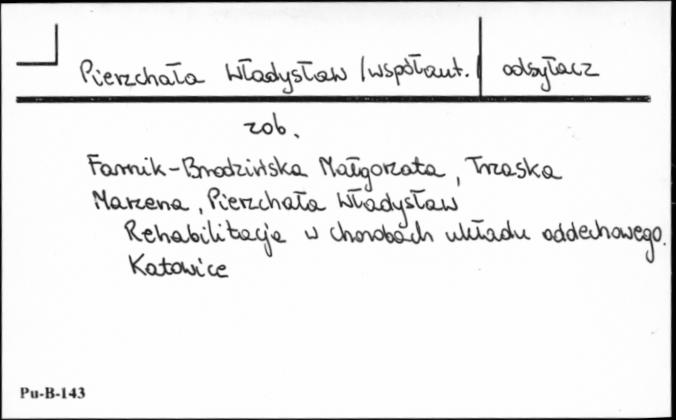 Pierzchała Władysław /współaut./ odsyłacz
zob.
Farnik-Brodzińska Małgorzata, Trzaska
Marzena, Pierzchała Władysław
Rehabilitacja w chorobach układu oddechowego.
Katowice
Pu-B-143